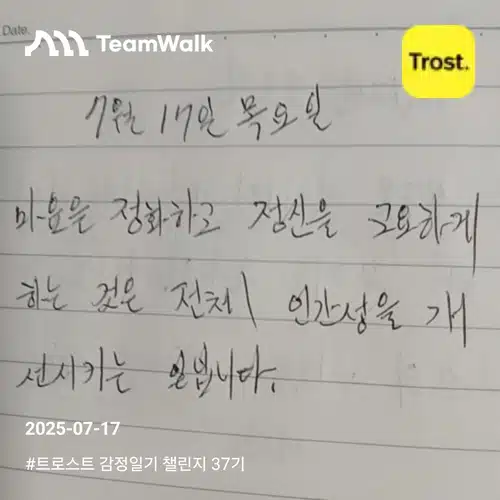 Date.
TeamWalk
Trost.
7월 17일 목요일
마음을 정화하고 정신을 고요하게
하는 것은 전체 인간성을 개
선시키는 일입니다.
2025-07-17
#트로스트 감정일기 챌린지 37기